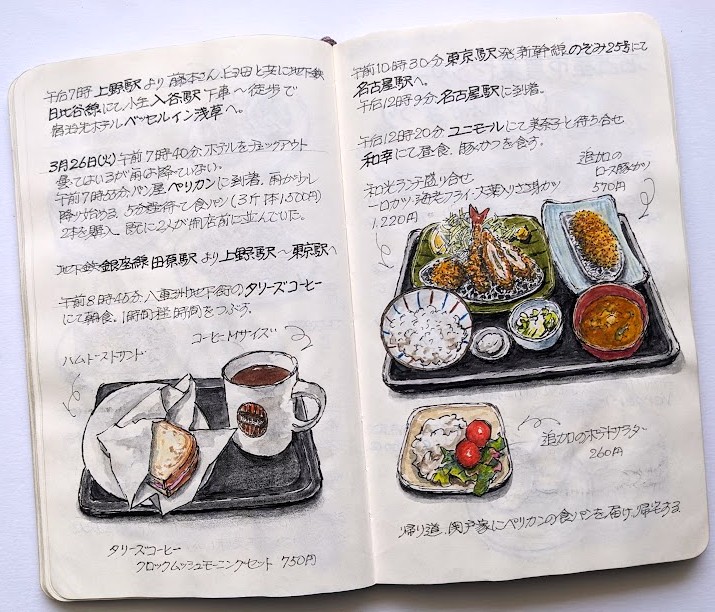 午后7時 上野駅より 藤本さん、臼田と共に地下鉄
日比谷線にて小生 入谷駅下車〜徒歩で
宿泊先ホテル ベッセルイン浅草へ。
3月26日(火) 午前7時40分 ホテルをチェックアウト
曇ってはいるが雨は降っていない。
午前7時55分 パン屋 ペリカンに到着。雨が少し
降り始める。5分程待って食パン(3斤1本1,500円)
2本を購入。既に2人が開店前に並んでいた。
地下鉄 銀座線 田原駅より上野駅〜東京駅へ
午前8時45分 八重洲地下街のタリーズコーヒー
にて朝食。1時間程時間をつぶす。
コーヒーMサイズ
ハムトーストサンド
タリーズコーヒー
クロックムッシュモーニングセット 750円
午前10時30分 東京駅発 新幹線 のぞみ25号にて
名古屋駅へ。
午后12時9分、名古屋駅に到着。
午后12時20分 ユニモールにて美奈子と待ち合せ
和幸にて昼食、豚かつを食す。
追加の
ロース豚かつ
570円
和光ランチ盛り合せ
一口かつ 海老フライ 大葉入りささ身かつ
1,220円
追加のポテトサラダ
260円
帰り道、関戸家にペリカンの食パンを届け、帰宅する